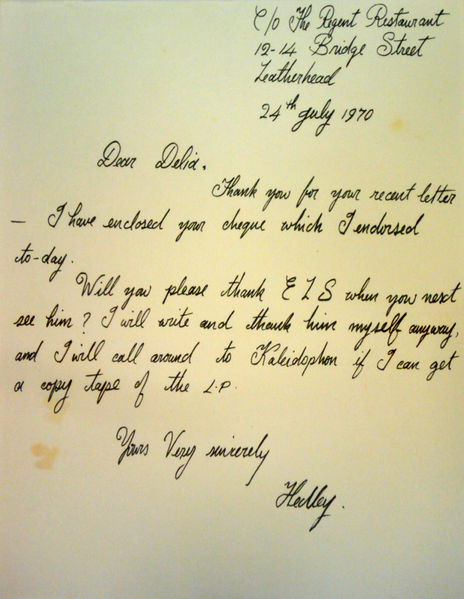 C/o The Regent Restaurant
12-14 Bridge Street
Leatherhead
24th July 1970
Dear Delia.
Thank you for your recent letter
— I have enclosed your cheque which I endorsed
to-day.
Will you please thank E L S when you next
see him? I will write and thank him myself anyway,
and I will call around to Kaleidophon if I can get
a copy tape of the L.P.
Yours Very sincerely
Hedley.